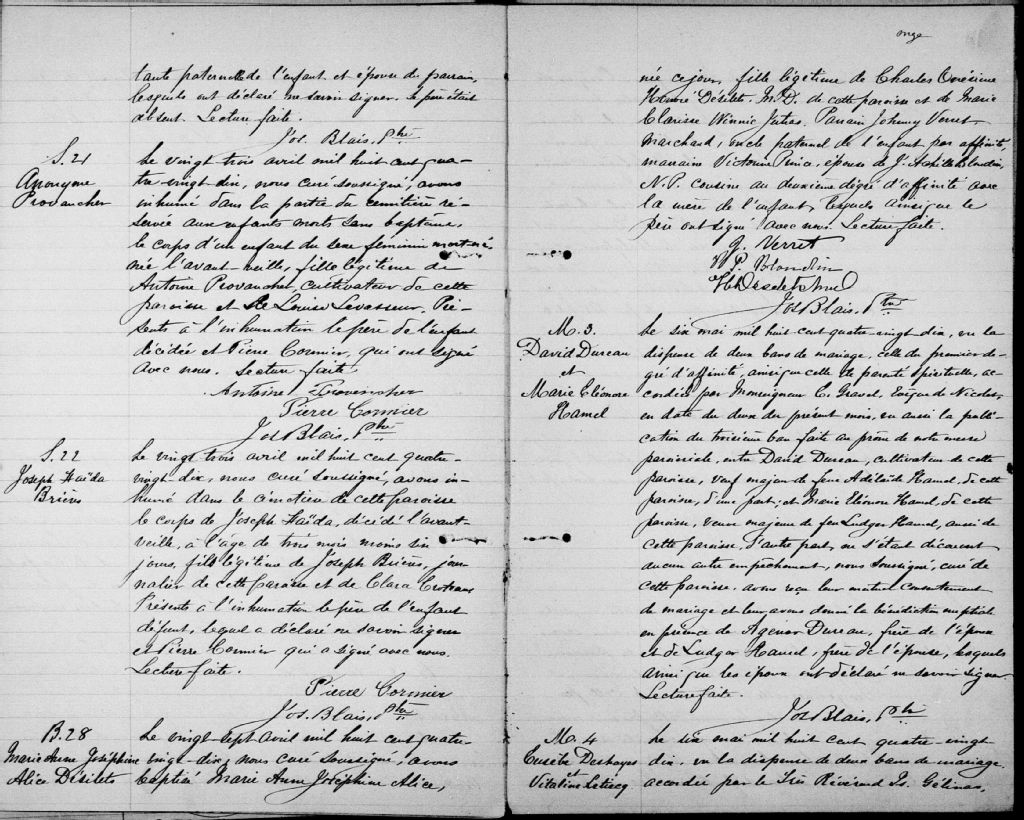 tante paternelle de l'enfant et épouse du parrain,
lesquels ont déclaré ne savoir signer. Le père était
absent. Lecture faite.
Jos. Blais, Ptre
S. 21
Anonyme
Provancher
Le vingt trois avril mil huit cent qua-
tre vingt dix, nous curé soussigné, avons
inhumé dans la partie du cimitière ré-
servée aux enfants morts sans baptême,
le corps d'un enfant du sexe féminin mort né
née l'avant-veille, fille légitime de
Antoine Provancher, cultivateur de cette
paroisse et de Louise Levasseur. Pré-
sents à l'inhumation le père de l'enfant
décédée et Pierre Cormier, qui ont signé
avec nous. Lecture faite
Antoine Provencher
Pierre Cormier
Jos Blais, Ptre
S. 22
Joseph Haïda
Briens
Le vingt trois avril mil huit cent quatre-
vingt-dix, nous curé soussigné, avons in-
humé dans le cimetière de cette paroisse
le corps de Joseph Haïda, décédé l'avant-
veille, à l'âge de trois mois moins six
jours, fils légitime de Joseph Briens, jour-
nalier de cette Paroisse et de Clara
Présents à l'inhumation le père de l'enfant
défunt, lequel a déclaré ne savoir signer
et Pierre Cormier qui a signé avec nous.
Lecture faite.
Pierre Cormier
Jos. Blais, Ptre
B. 28
Marie Anne Joséphine
Alice Désilets
Le vingt-sept avril mil huit cent quatre-
vingt-dix, nous curé soussigné, avons
baptisé Marie Anne Joséphine Alice,
onze
née ce jour, fille légitime de Charles Onésime
Honoré Désilets, M.D. de cette paroisse et de Marie
Clarisse Winnie Jutras. Parrain Johnny Verret
marchand, oncle paternel de l'enfant par affinité,
marraine Victorine Princa, épouse de J. Achille Blondin,
N.P. cousine au deuxième dégré d'affinité avec
la mère de l'enfant, lesquels ainsi que le
père ont signé avec nous. Lecture faite.
J. Verret
V P. Blondin
Jos Blais, Ptre
M. 3.
David Dureau
et
Marie Eléonore
Hamel
Le six mai mil huit cent quatre-vingt dix, vu la
dispense de deux bans de mariage, celle du premier de-
gré d'affinité, ainsi que celle de parenté spirituelle, ac-
cordées par Monseigneur E. Gravel, Evêque de Nicolet,
en date du deux du présent mois, vu aussi la publi-
cation du troisième ban faite au prône de notre messe
paroissiale, entre David Dureau, cultivateur de cette
paroisse, veuf majeur de feue Adélaïde Hamel, de cette
paroisse, d'une part; et Marie Eléonore Hamel, de cette
paroisse, veuve majeure de feu Ludger Hamel, aussi de
cette paroisse, d'autre part, ne s'étant découvert
aucun autre empêchement, nous soussigné, curé de
cette paroisse, avons reçu leur mutuel consentement
de mariage et leur avons donné la bénédiction nuptiale
en présence de Agénor Dureau, frère de l'époux
et de Ludger Hamel, frère de l'épouse, lesquels
ainsi que les époux ont déclaré ne savoir signer.
Lecture faite.
Jos Blais, Ptre
M. 4
Eusèbe Deshayes
et
Vitaline Leticcq
Le six mai mil huit cent quatre-vingt
dix, vu la dispense de deux bans de mariage,
accordée par le Très Révérend Is. Gélinas,